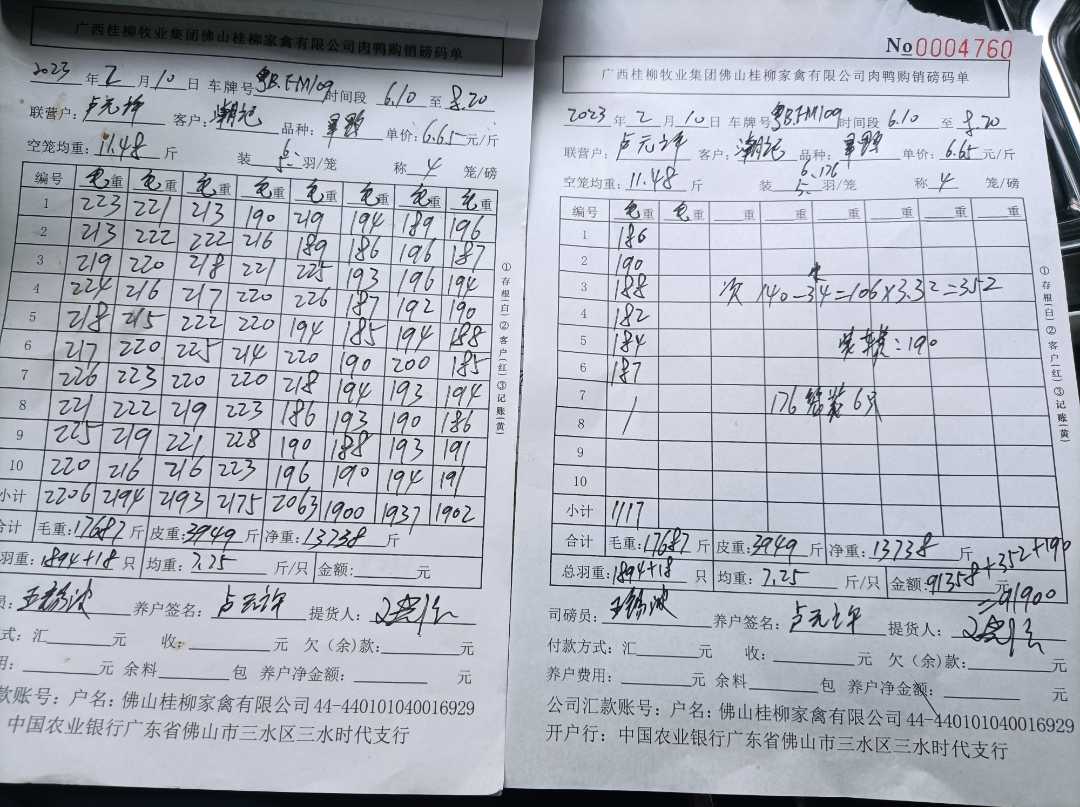 广西桂柳牧业集团佛山桂柳家禽有限公司肉鸭购销磅码单
2023年2月10日 车牌号 粤B.FM109 时间段 6.10 至 8.20
联营户: 卢元 客户: 潮记 品种: 单价: 6.65元/斤
空笼均重: 11.48 斤 装 6 5 羽/笼 称 4 笼/磅
编号 毛重 毛重 毛重 毛重 毛重 毛重 毛重 毛重
1 223 221 213 190 219 194 189 196
2 213 222 222 216 189 186 196 187
3 219 220 218 221 225 193 196 194
4 224 216 217 220 226 187 192 190
5 218 215 222 220 194 185 194 188
6 217 220 225 214 220 190 200 185
7 226 223 220 220 218 194 193 194
8 221 222 219 223 186 193 190 186
9 225 219 221 228 190 188 193 191
10 220 216 216 223 196 190 194 191
小计 2206 2194 2193 2175 2063 1900 1937 1902
合计 毛重: 17687斤 皮重: 3949斤 净重: 13738 斤
羽重: 1894+18 只 均重: 7.25 斤/只 金额: 元
员: 养户签名: 卢元 提货人:
式: 汇 元 收: 元 欠(余)款: 元
用: 元 余料 包 养户净金额: 元
款账号: 户名: 佛山桂柳家禽有限公司 44-440101040016929
中国农业银行广东省佛山市三水区三水时代支行
①存根(白)②客户(红)③记账(黄)
No0004760
广西桂柳牧业集团佛山桂柳家禽有限公司肉鸭购销磅码单
2023年2月10日 车牌号 粤B.FM109 时间段 6.10 至 8.20
联营户: 卢元 客户: 潮记 品种: 单价: 6.65元/斤
空笼均重: 11.48 斤 装 6.176 5 羽/笼 称 4 笼/磅
编号 毛重 毛重 重 重 重 重 重 重
1 186
2 190
3 188 次 140-34=106×3.32=352
4 182
5 184 装车费:190
6 187
7 176笼装6只
8
9
10
小计 1117
合计 毛重: 17687斤 皮重: 3949斤 净重: 13738 斤
总羽重: 1894+18 只 均重: 7.25 斤/只 金额: 91358+352+190
=91900
司磅员: 养户签名: 卢元 提货人:
付款方式: 汇 元 收: 元 欠(余)款: 元
养户费用: 元 余料 包 养户净金额: 元
公司汇款账号: 户名: 佛山桂柳家禽有限公司 44-440101040016929
开户行: 中国农业银行广东省佛山市三水区三水时代支行
①存根(白)②客户(红)③记账(黄)